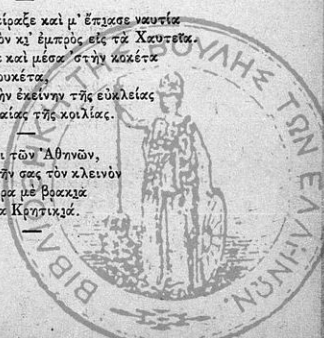 είραξε καὶ μ' ἔπιασε ναυτία
ὸν κι' ἐμπρὸς εἰς τὰ Χαυτεῖα.
ε καὶ μέσα 'στὴν κοκέτα
ουκέτα,
ὴν ἐκείνην τῆς εὐκλείας
αίας τῆς κοιλίας.
ι τῶν Ἀθηνῶν,
ῆν σας τὸν κλεινὸν
ρα με βρακιὰ
α Κρητικιά.
ΒΙΒΛΙΟΘΗΚΗ ΤΗΣ ΒΟΥΛΗΣ ΤΩΝ ΕΛΛΗΝΩΝ